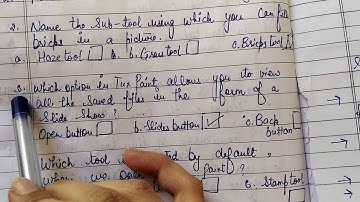 2. Name the Sub-tool using which you can fill
bricks in a picture.
a. Haze tool b. b. Grass tool c. Bricks tool
3. Which option in Tux Paint allows you to view
all the Saved files in the form of a
Slide Show?
Open button b. Slides button ✓ c. Back
button
Which tool is by default,
when we open Paint)?
c. Stamp tool